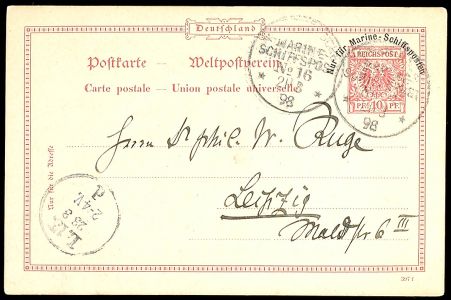 Deutschland
Postkarte — Weltpostverein
Carte postale — Union postale universelle
Nur für Marine-Schiffsposten
REICHSPOST
PF. 10 PF.
MARINE-
SCHIFFSPOST
No 16
98
98
Nur für die Adresse
23 8
2-4V.
d
Herrn Dr phil. W. Ruge
Leipzig
Waldstr 6 III